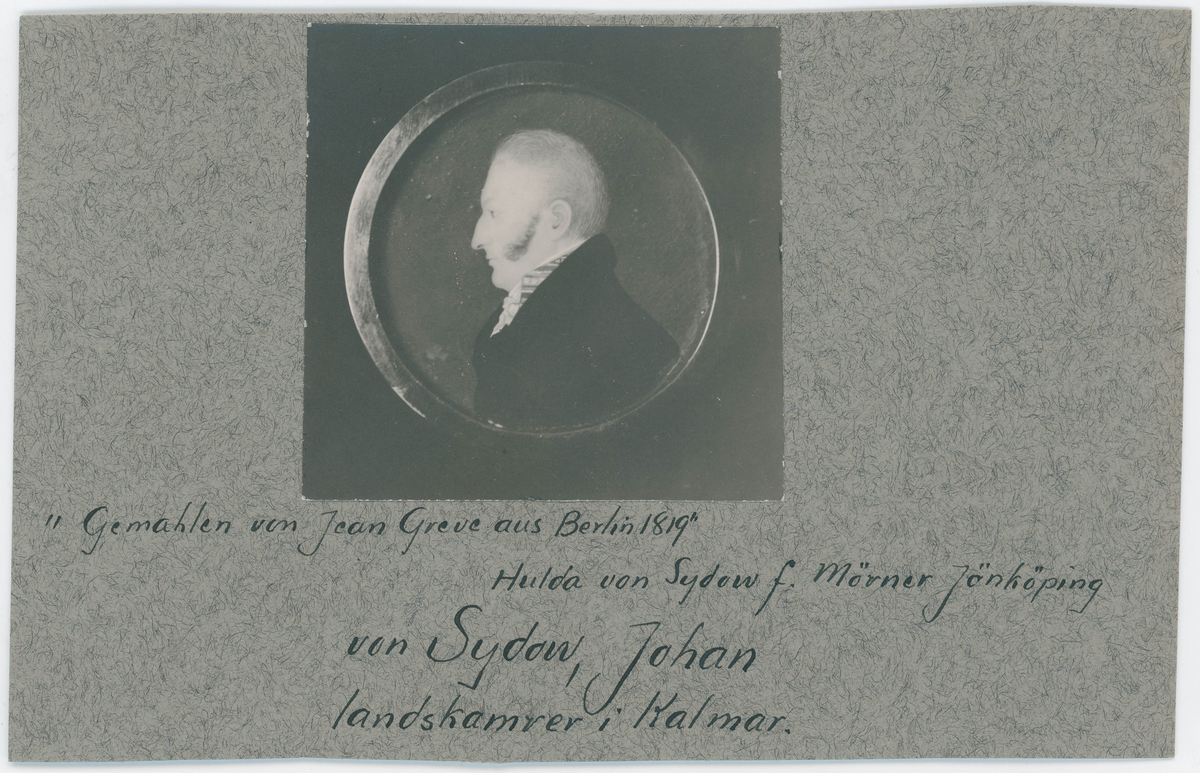 " Gemahlen von Jean Greve aus Berlin 1819"
Hulda von Sydow f. Mörner Jönköping
von Sydow, Johan
landskamrer i Kalmar.